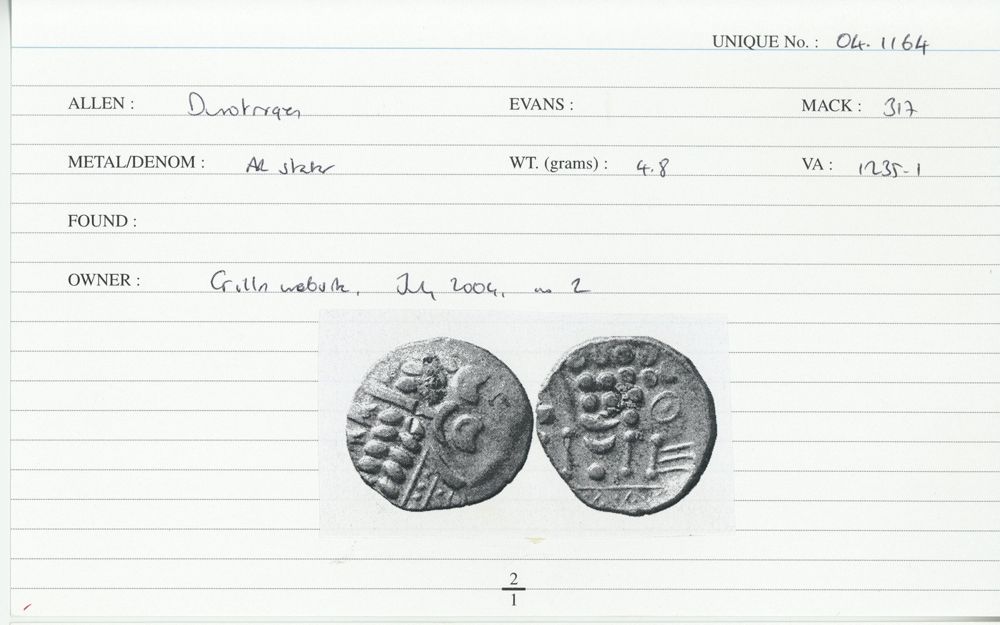 UNIQUE No. : 04. 1164
ALLEN : Durotriges EVANS : MACK : 317
METAL/DENOM : AR stater WT. (grams) : 4.8 VA : 1235-1
FOUND :
OWNER : website, July 2004, no 2
2
1